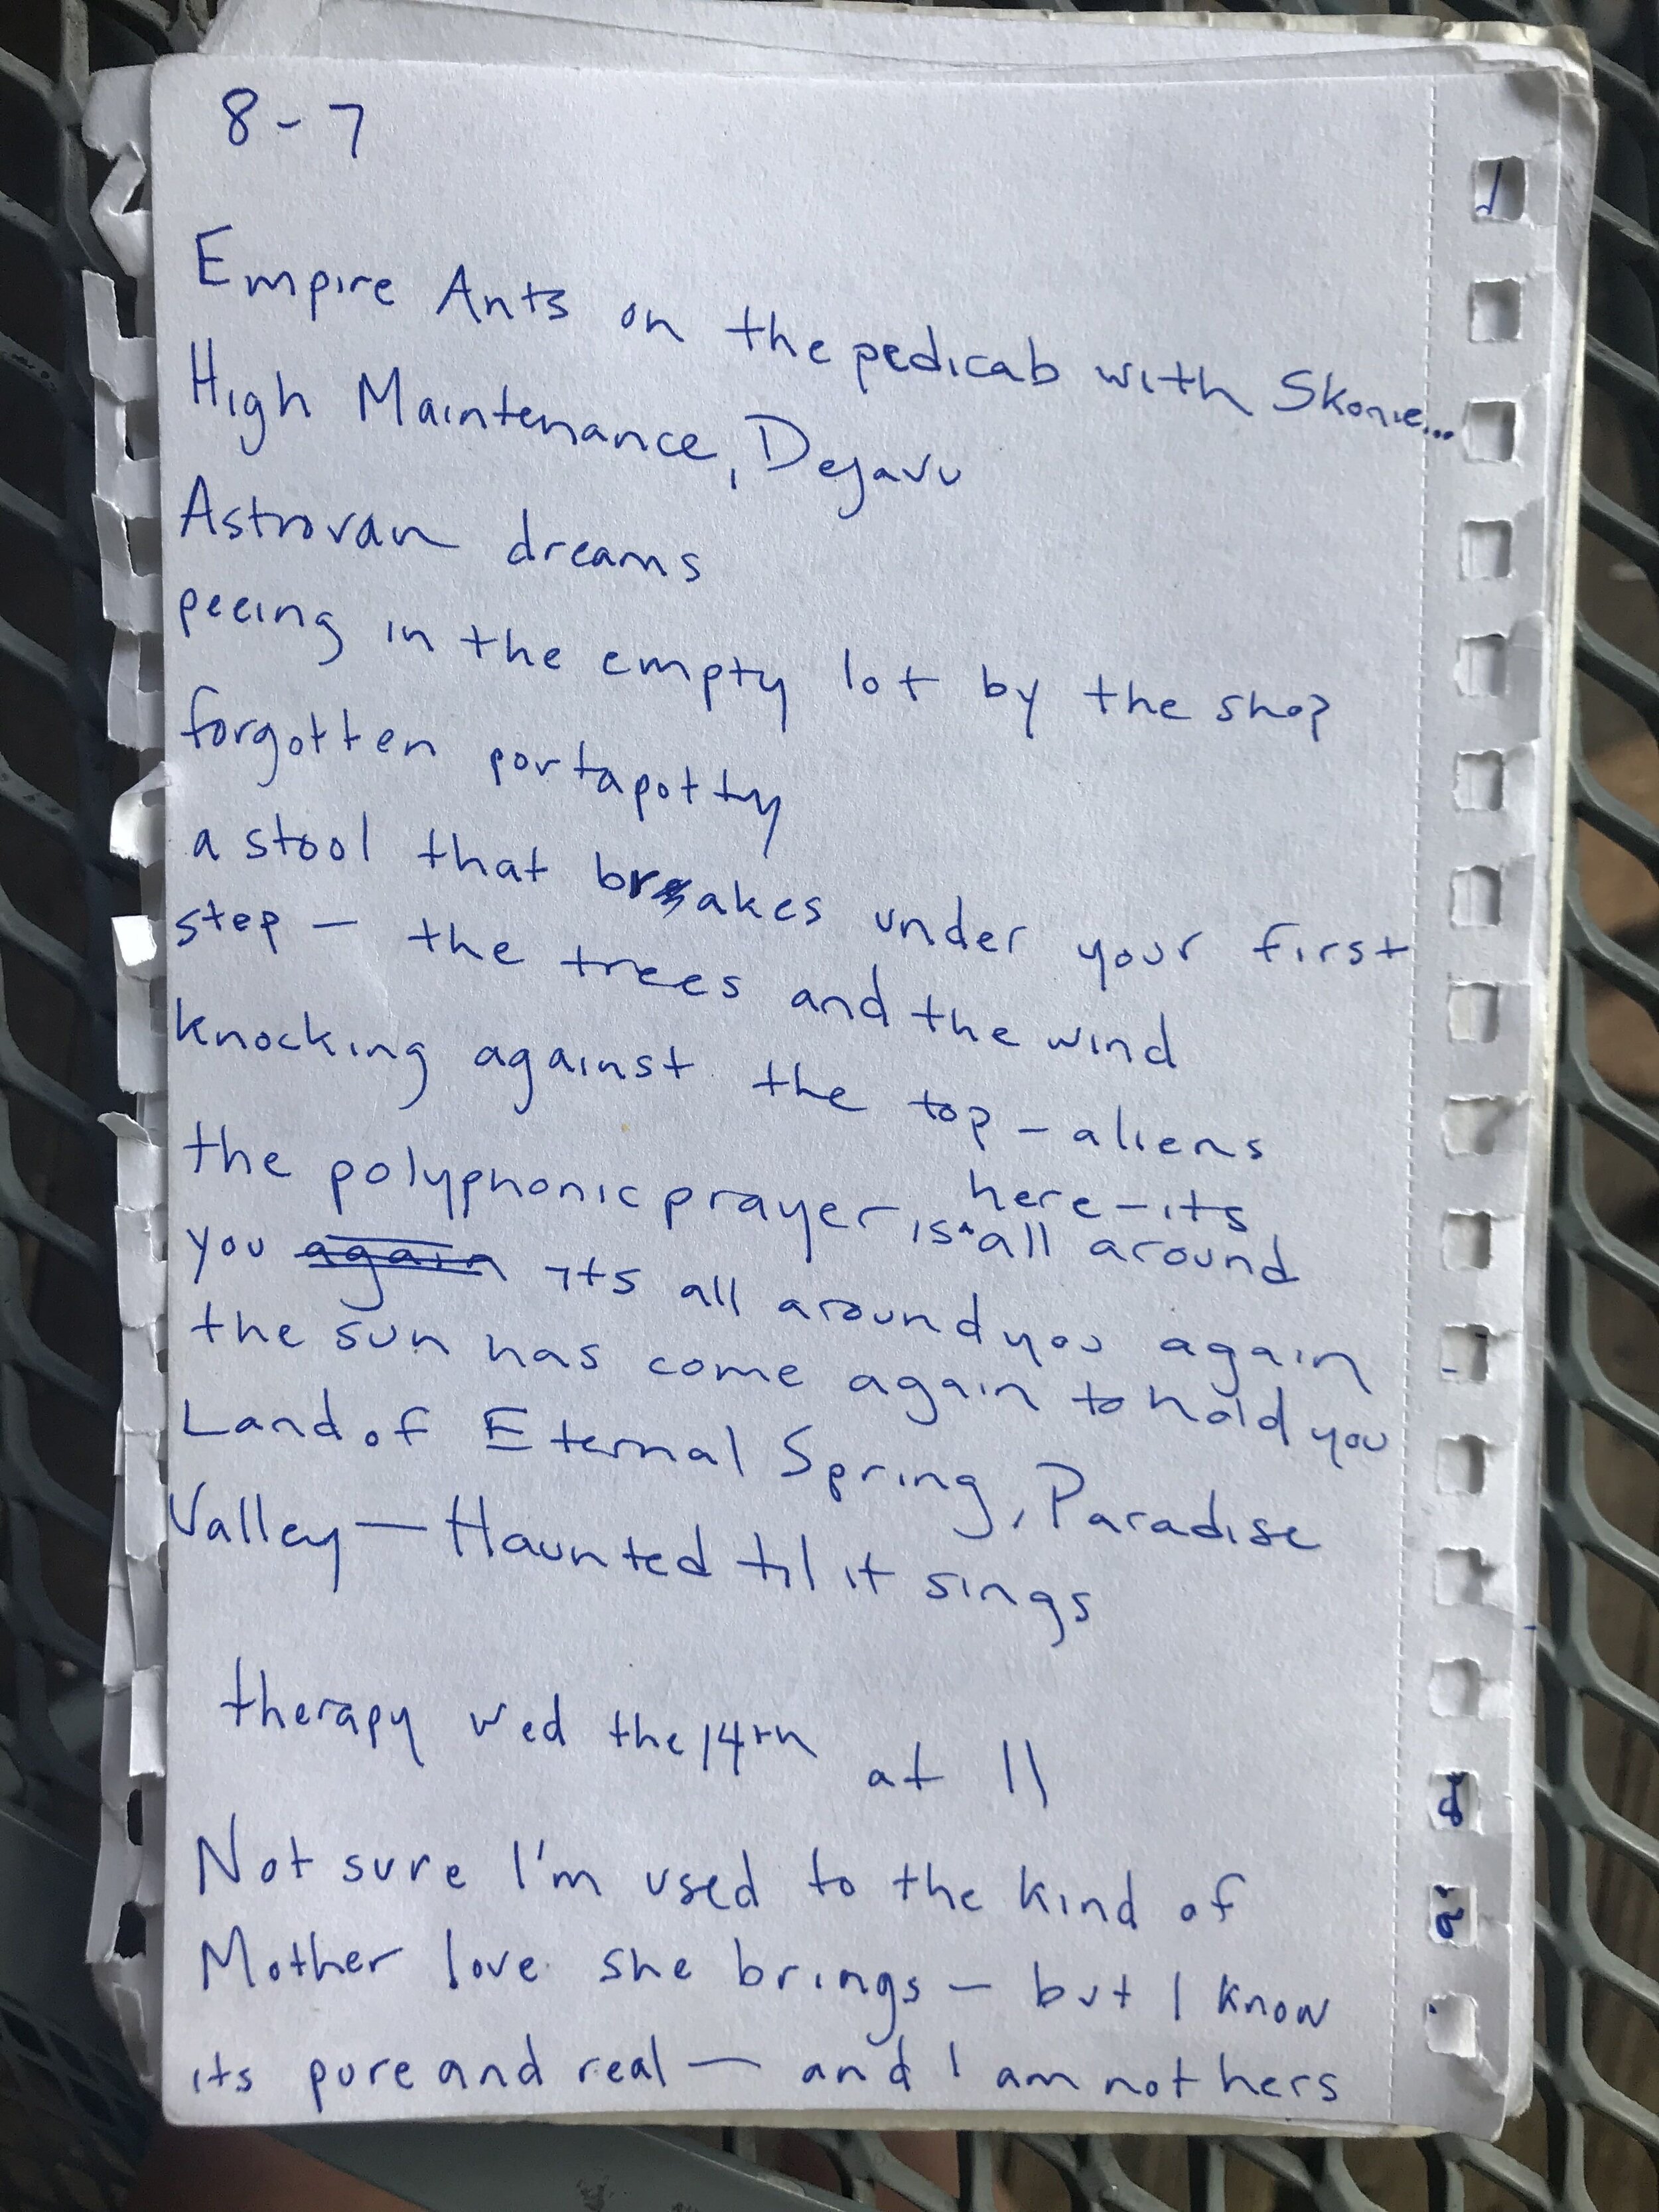 8-7
Empire Ants on the pedicab with Skonie...
High Maintenance, Dejavu
Astrovan dreams
peeing in the empty lot by the shop
forgotten portapotty
a stool that breakes under your first
step — the trees and the wind
knocking against the top - aliens
the polyphonic prayer is here - its all around
you again its all around you again
the sun has come again to hold you
Land of Eternal Spring, Paradise
Valley — Haunted til it sings
therapy wed the 14th at 11
Not sure I'm used to the kind of
Mother love she brings - but I know
its pure and real — and I am not hers